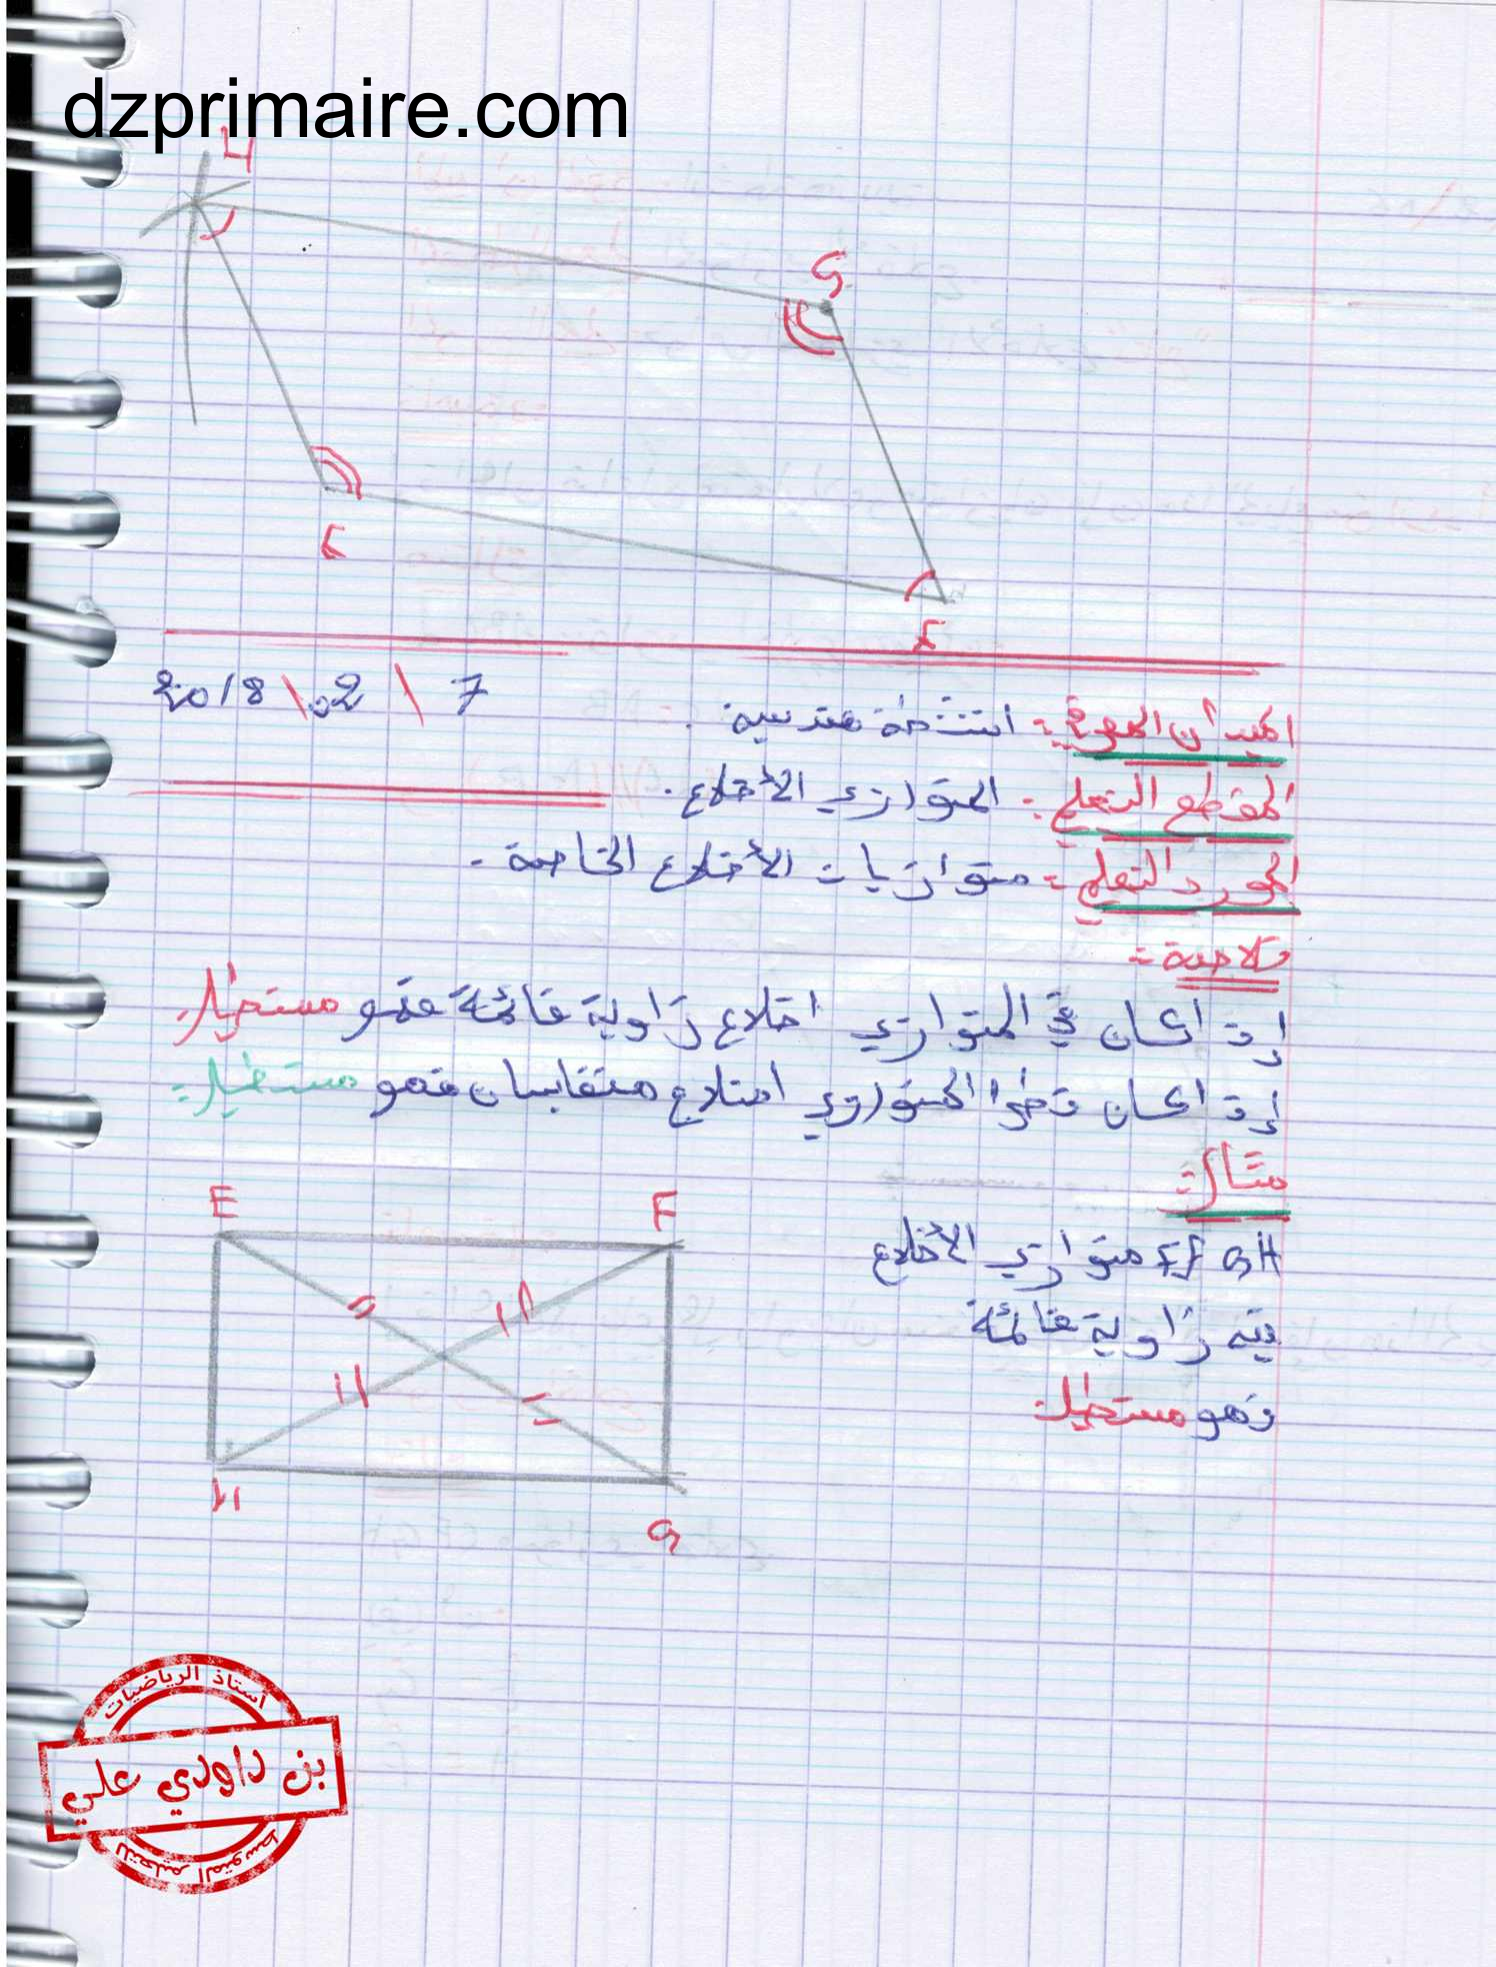 dzprimaire.com
H
G
E
F
7 \ 02 \ 2018
الميدان المعرفي :- انشطة هندسية .
المقطع التعلمي :- المتوازي الأضلاع .
المورد التعلمي :- متوازيات الأضلاع الخاصة .
خلاصة :-
إذا كان في المتوازي اضلاع زاوية قائمة فهو مستطيل.
إذا كان قطرا المتوازي اضلاع متقايسان فهو مستطيل :-
مثال :-
EFGH متوازي الأضلاع
فيه زاوية قائمة
فهو مستطيل
E
F
H
G
أستاذ الرياضيات
بن داودي علي
للتعليم المتوسط